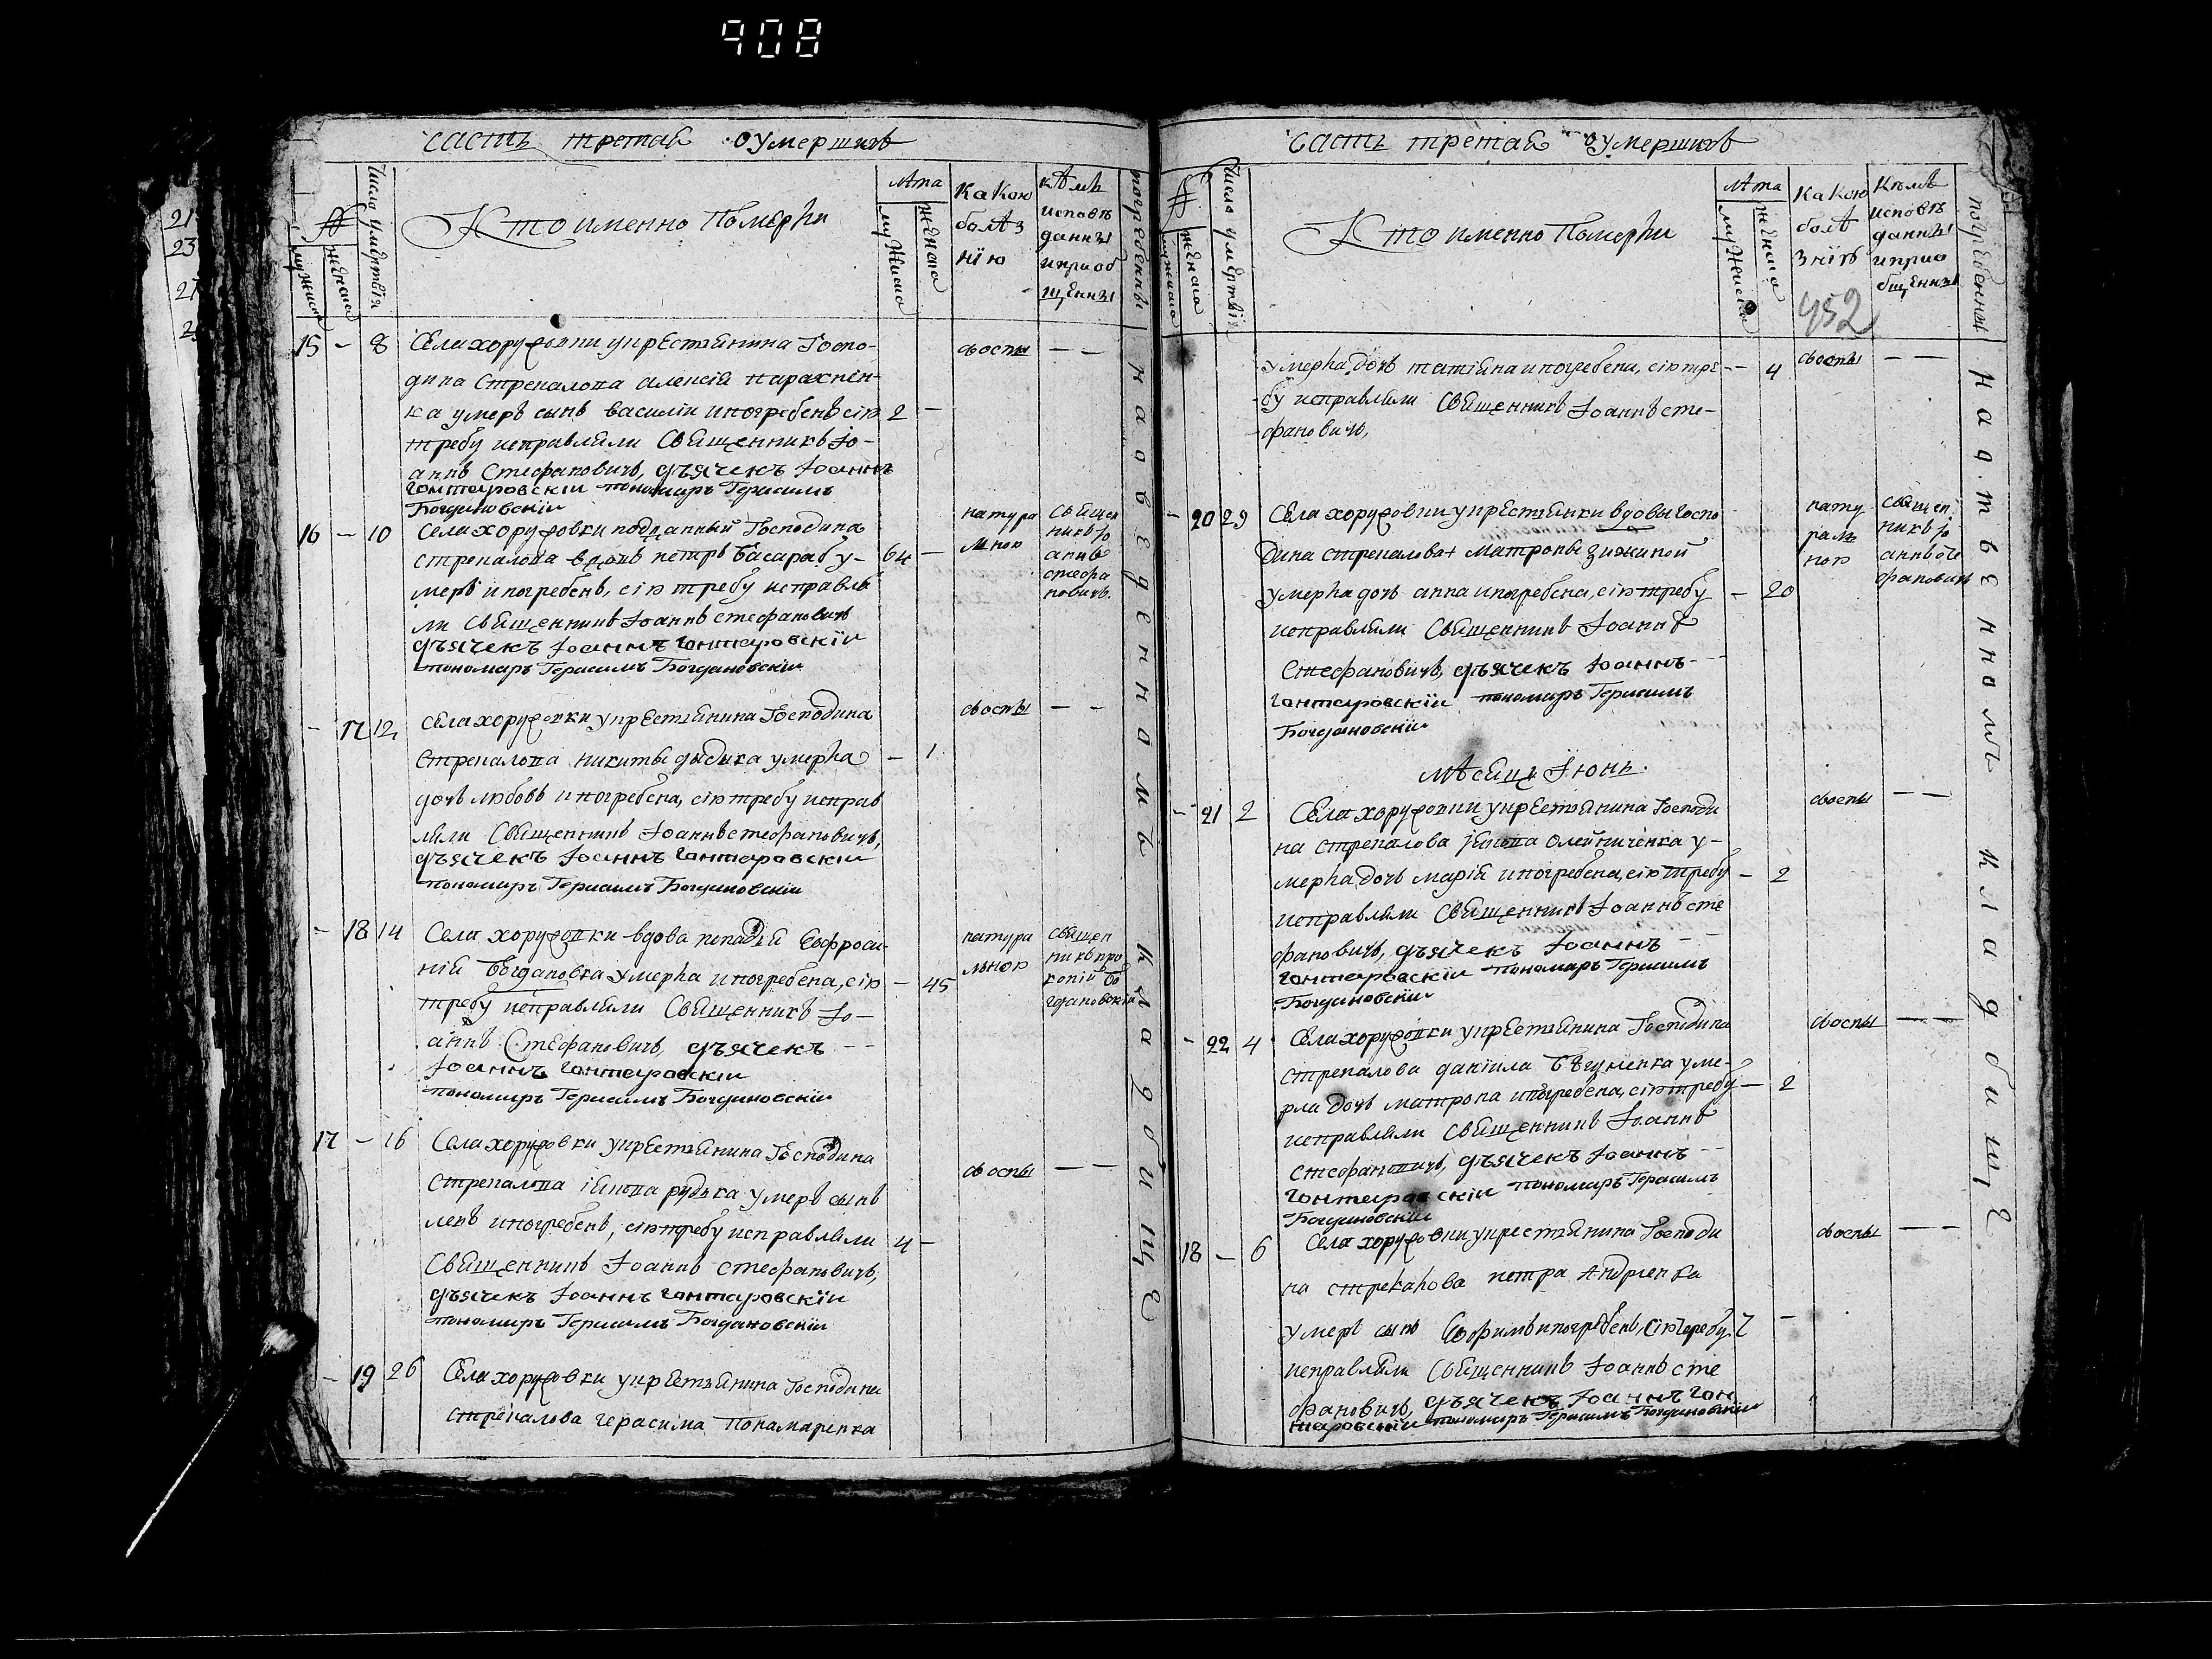 908
часть третая о умершихъ
№
мужеска
женска
Число умертвія
Кто именно Померли
лѣта
мужеска
женска
Какою
болѣз
нїю
кѣмъ
исповѣ
данны
и приоб
щенны
погребенны
15 — 8 Села хоружовки укрестьянина Госпо-
дина Стрекалова алексія
ка умеръ сынъ василій и погребенъ сію 2 —
требу исправляли Священникъ Іо-
аннъ Стефановичъ, дъячекъ Іоаннъ
Гонтаровскїй пономаръ Герасимъ
Богдановскїй
съоспы — —
16 — 10 Села хоружовки подданный Господина
стрекалова вдовъ петръ басарабъ у- 64 —
меръ и погребенъ, сію требу исправля
ли Священникъ Іоаннъ стефановичъ
дъячекъ Іоаннъ Гонтаровскїй
пономаръ Герасимъ Богдановскїй
натура
лною
Священ
никъ Іо
аннъ
стефа
новичъ.
— 17 12 села хоружовки укрестьянина Господина
Стрекалова никиты дыдыка умерла — 1
дочъ любовь и погребена, сію требу исправ
ляли Священникъ Іоаннъ стефановичъ,
дъячекъ Іоаннъ Гонтаровскїй
пономаръ Герасимъ Богдановскїй
съоспы — —
— 18 14 Села хоружовки вдова попадія Евфроси-
нія Богдановка умерла и погребена, сію — 45
требу исправляли Священникъ Іо-
аннъ Стефановичъ, дъячекъ
Іоаннъ Гонтаровскїй
пономаръ Герасимъ Богдановскїй
натура
льною
священ
никъ про
копій Бо
гдановскїй
17 — 16 Села хоружовки укрестьянина Господина
Стрекалова іякова рудька умеръ сынъ
левъ и погребенъ, сію требу исправляли 4 —
Священникъ Іоаннъ стефановичъ,
дъячекъ Іоаннъ Гонтаровскїй
пономаръ Герасимъ Богдановскїй
съоспы — —
— 19 26 Села хоружовки укрестьянина Господина
стрекалова герасима Понамаренка
на отведенномъ кладбищѣ
часть третая о умершихъ
№
мужеска
женска
Число умертвія
Кто именно Померли
лѣта
мужеска
женска
Какою
болѣ
знїю
Кѣмъ
исповѣ
данны
и прио
бщенны
погребенны
452
умерла дочъ татіяна и погребена, сію тре- — 4
бу исправляли Священникъ Іоаннъ сте-
фановичъ,
съоспы — —
— 20 29 Села хоружовки укрестьянки вдовы Госпо
дина стрекалова матроны
умерла дочъ анна и погребена, сію требу — 20
исправляли Священникъ Іоаннъ
Стефановичъ, дъячекъ Іоаннъ
Гонтаровскїй пономаръ Герасимъ
Богдановскїй
нату
раль
ною
священ
никъ Іо
аннъ сте
фановичъ
мѣсяцъ Іюнь.
— 21 2 Села хоружовки укрестьянина Господи
на стрекалова іякова олейниченка у-
мерла дочъ марія и погребена, сію требу — 2
исправляли Священникъ Іоаннъ сте
фановичъ, дъячекъ Іоаннъ
Гонтаровскїй пономаръ Герасимъ
Богдановскїй
съоспы — —
— 22 4 Села хоружовки укрестьянина Господина
стрекалова даніила уме-
рла дочъ матрона и погребена, сію требу — 2
исправляли Священникъ Іоаннъ
стефановичъ, дъячекъ Іоаннъ
Гонтаровскїй пономаръ Герасимъ
Богдановскїй
съоспы — —
18 — 6 Села хоружовки укрестьянина Господи
на стрекалова петра Андріенка
умеръ сынъ Евфимъ и погребенъ, сію требу 2 —
исправляли Священникъ Іоаннъ сте
фановичъ, дъячекъ Іоаннъ Гон
таровскїй пономаръ Герасимъ Богдановскїй
съоспы — —
на отведенномъ кладбищѣ
21
23